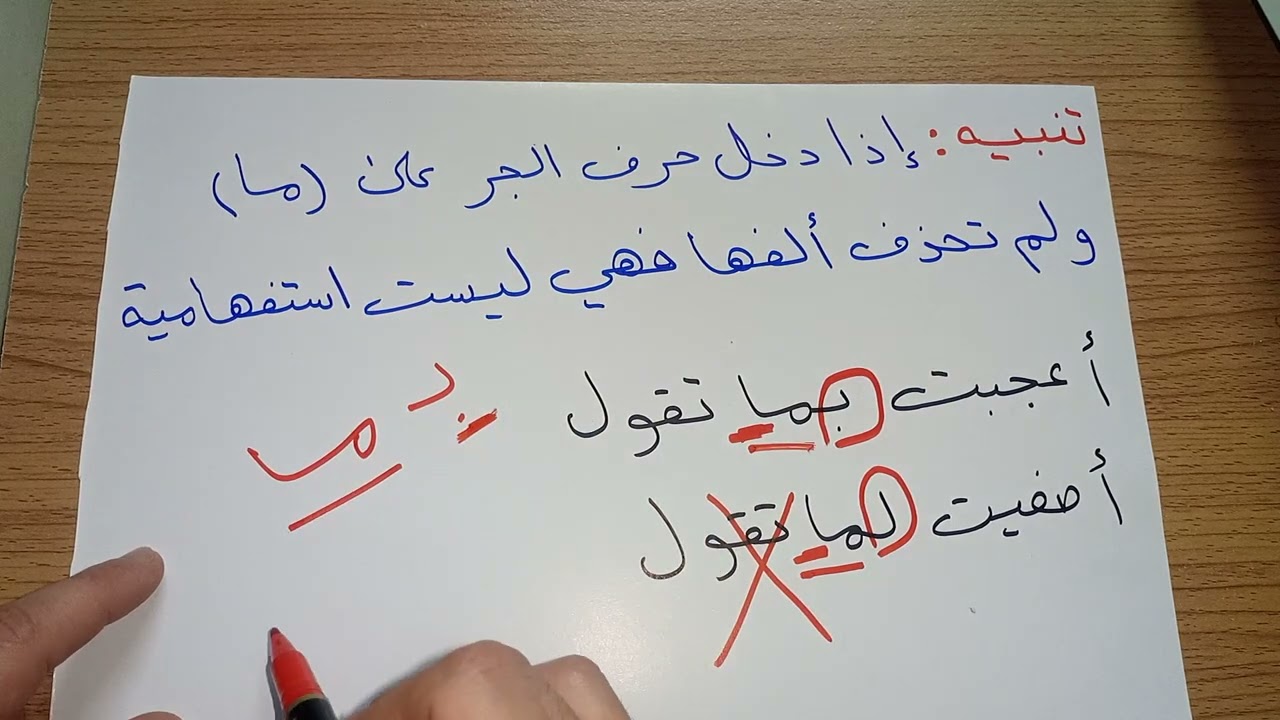 تنبيه: إذا دخل حرف الجر على (ما)
ولم تحذف ألفها فهي ليست استفهامية
أعجبت بما تقول
أصفيت لما تقول